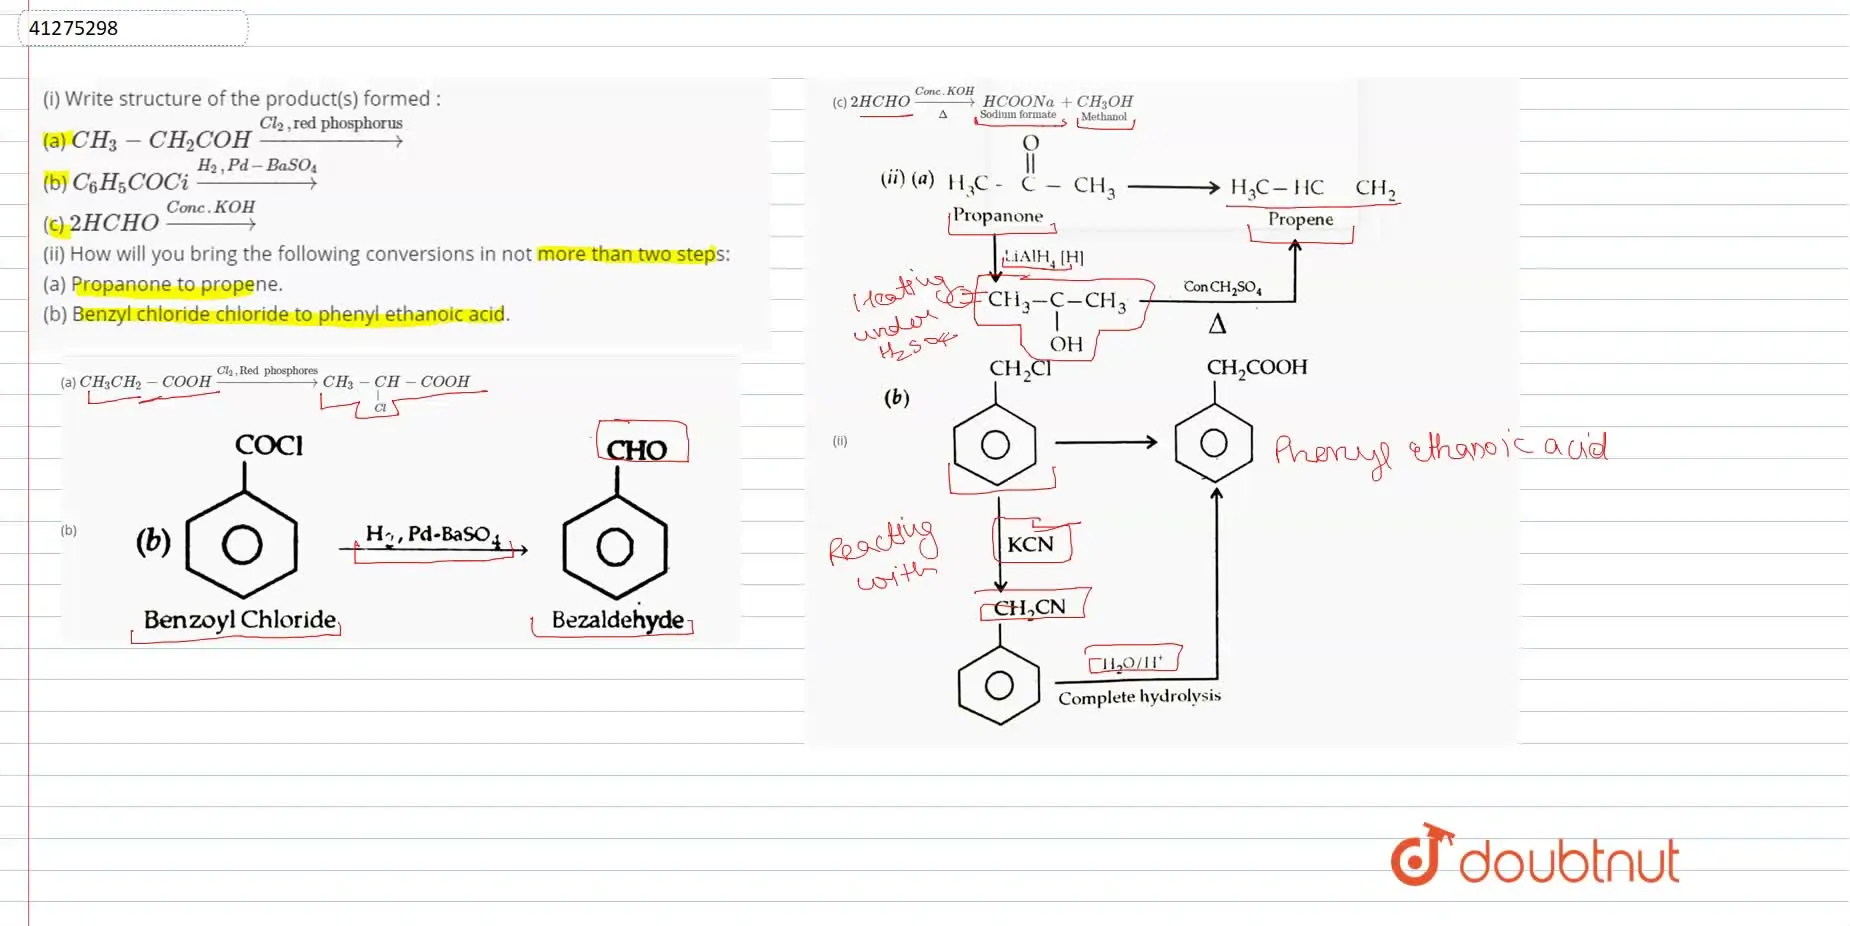 41275298
(i) Write structure of the product(s) formed :
(a) CH₃ − CH₂COH Cl₂,red phosphorus →
(b) C₆H₅COCi H₂,Pd−BaSO₄ →
(c) 2HCHO Conc.KOH →
(ii) How will you bring the following conversions in not more than two steps:
(a) Propanone to propene.
(b) Benzyl chloride chloride to phenyl ethanoic acid.
(a) CH₃CH₂ − COOH Cl₂,Red phosphores → CH₃ − CH − COOH
Cl
COCl
CHO
(b)
(b)
H₂, Pd-BaSO₄
Benzoyl Chloride
Bezaldehyde
(c) 2HCHO Conc.KOH Δ → HCOONa + CH₃OH
Sodium formate Methanol
O
(ii) (a) H₃C - C – CH₃ → H₃C – HC CH₂
Propanone
Propene
LiAlH₄ [H]
Heating
under
H₂SO₄
CH₃–C–CH₃
Con CH₂SO₄
Δ
OH
CH₂Cl
CH₂COOH
(b)
(ii)
Phenyl ethanoic acid
Reacting
with
KCN
CH₂CN
H₂O/H⁺
Complete hydrolysis
doubtnut